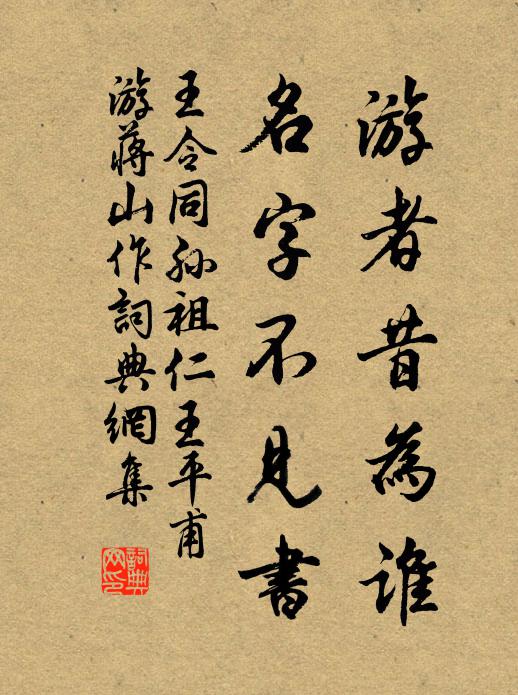 游者昔為誰
名字不見書
王令同孙祖仁王平甫
游蔣山作詞典網集
詞典網印